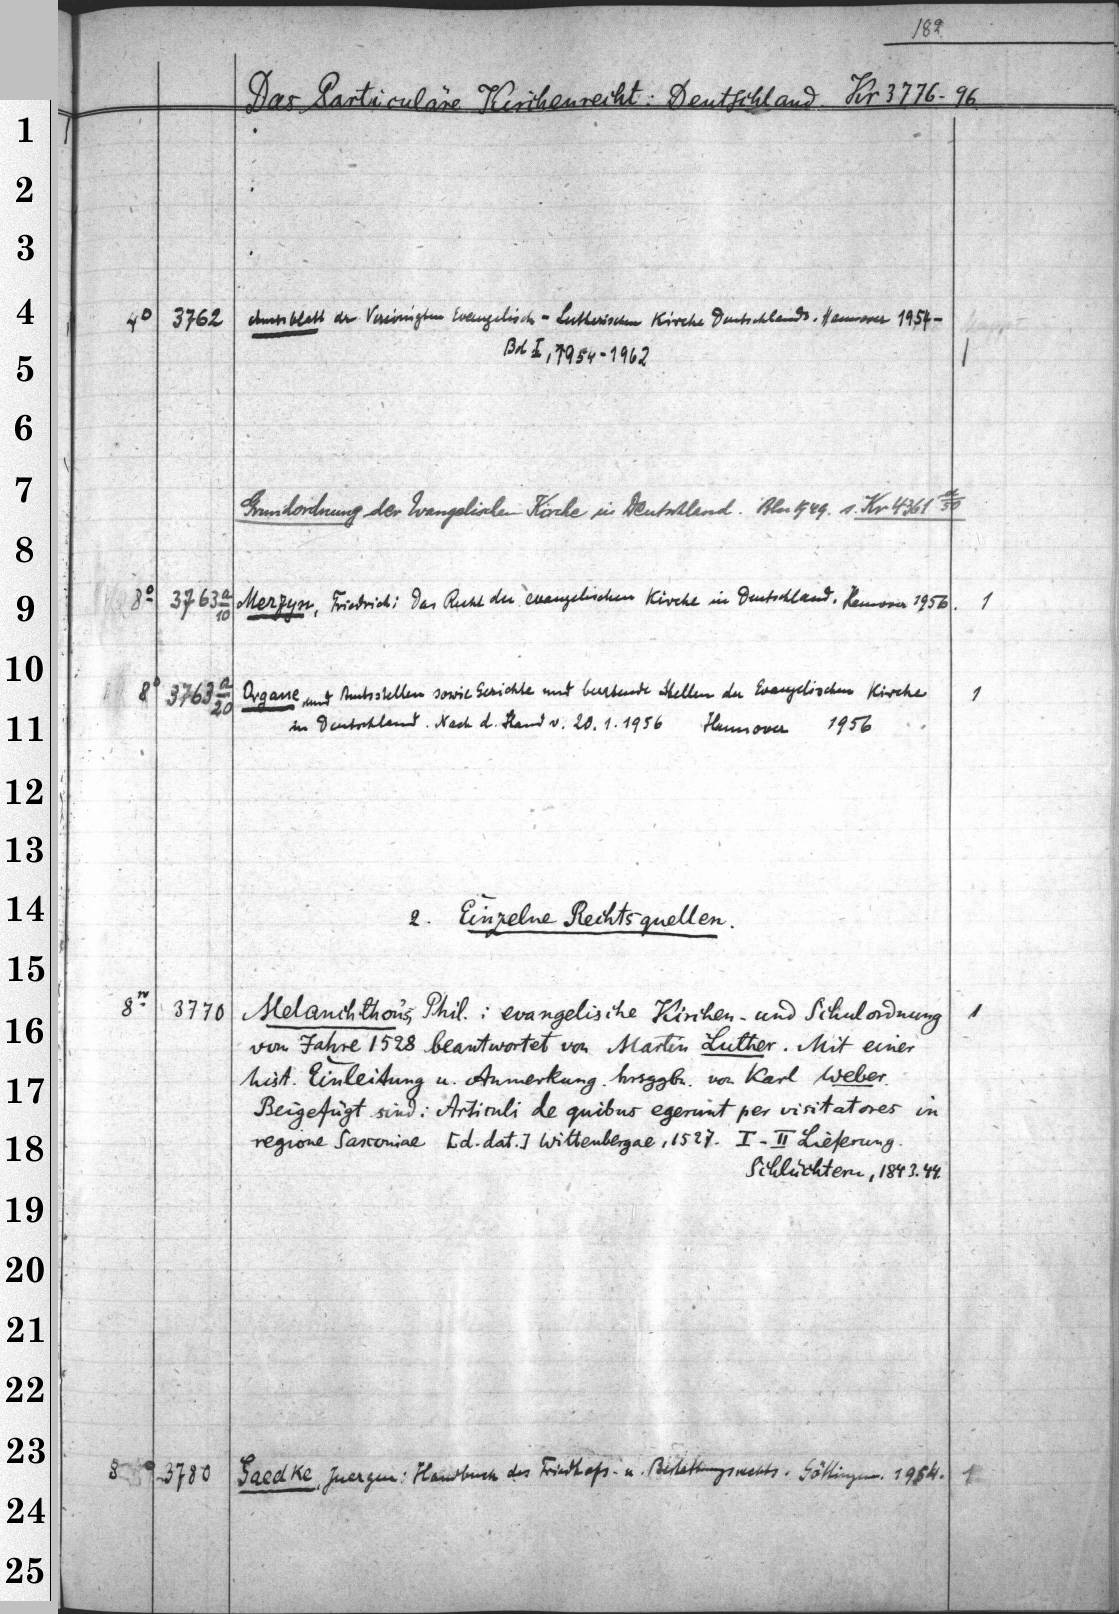 182
Das Particuläre Kirchenrecht: Deutschland. Kr 3776-96
1
2
3
4
4° 3762 Amtsblatt der Vereinigten Evangelisch-Lutherischen Kirche Deutschlands. Hannover 1954-
Bd I, 1954-1962 1
5
6
7
Grundordnung der Evangelischen Kirche in Deutschland. Bln 1949. s. Kr 4361 a/30
8
9
8° 3763 a/10 Merzyn, Friedrich: Das Recht der evangelischen Kirche in Deutschland. Hannover 1956. 1
10
8° 3763 a/20 Organe und Amtsstellen sowie Gerichte und beratende Stellen der Evangelischen Kirche 1
11
in Deutschland. Nach d. Stand v. 20.1.1956 Hannover 1956
12
13
14
2. Einzelne Rechtsquellen.
15
8° 3770 Melanchthon's, Phil.: evangelische Kirchen- und Schulordnung 1
16
vom Jahre 1528 beantwortet von Martin Luther. Mit einer
hist. Einleitung u. Anmerkung. hrsggbn. von Karl Weber.
17
Beigefügt sind: Articuli de quibus egerunt per visitatores in
18
regione Saxoniae [d. dat.] Wittenbergae, 1527. I-II Lieferung.
Schlüchtern, 1843.44.
19
20
21
22
23
8° 3780 Gaedke, Juergen: Handbuch des Friedhofs- u. Bestattungsrechts. Göttingen. 1954. 1
24
25